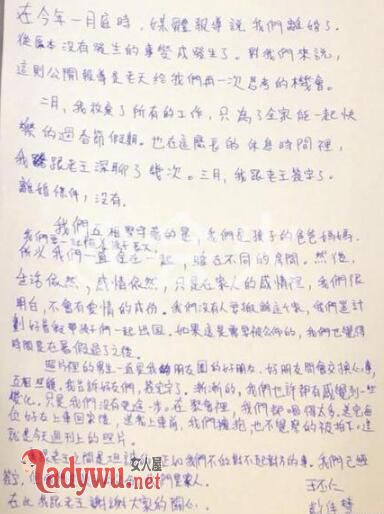 在今年一月底時，媒體報導說我們離婚了。
從原本沒有發生的事變成發生了。對我們來說，
這則公開報導是老天給我們再一次思考的機會。
二月，我放棄了所有的工作，只為了全家能一起快
樂的過春節假期。也在這麼長的休息時間裡，
我跟老王深聊了幾次。三月，我跟老王簽字了。
離婚條件，沒有。
我們互相堅守著的是，我們是孩子的爸爸媽媽。
我們要一起陪著孩子長大，
所以我們一直住在一起，睡在不同的房間。然後，
生活依然，感情依然，只是在家人的感情裡，我們很
明白，不會有愛情的成份。我們沒有人要搬離這個家，我們還計
劃好暑假帶孩子們一起出國。如果這是需要被公佈的，我們也覺得
時間是在暑假過了之後。
照片裡的男生一直是我朋友圈的好朋友，好朋友間會交換心事，
互相照顧，我告訴好友們，我簽字了。漸漸的，我們也許都有感覺到一些
變化，只是我們沒有更進一步。在聚會裡，我們都喝得太多，送完每
位好友上車回家後，送我上車前，我們擁抱也不覺莫的被拍下這
就是今天週刊上的照片。
我們不的對不起對方的事。我們已經
簽，但 家人。
在此我跟老王謝謝大家的關心。
女人屋
ladywu.net